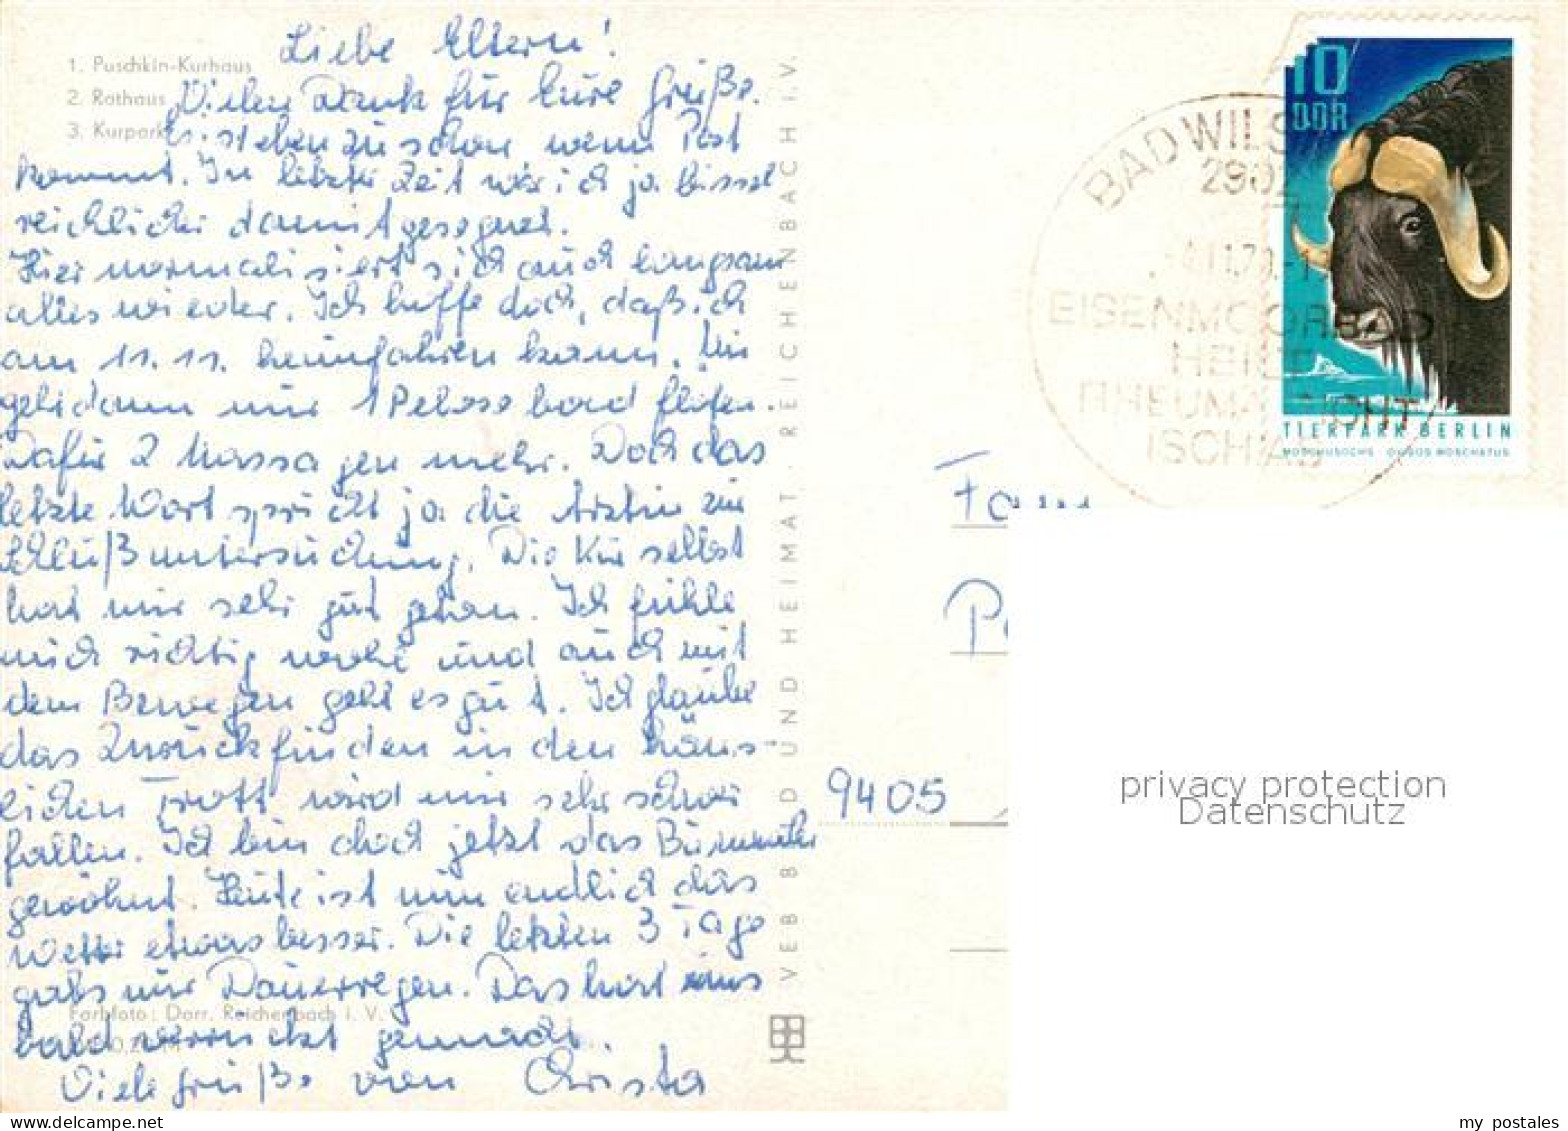 Liebe Eltern!
1. Puschkin-Kurhaus
2. Rathaus
3. Kurpark
Vielen Dank für Eure Grüße.
Es ist eben zu schön wenn Post
kommt. In letzter Zeit war ich ja bissel
reichlicher damit gesegnet.
Hier normalisiert sich auch langsam
alles wieder. Ich hoffe doch, daß ich
am 11.11. heimfahren kann. Mir
geht dann nur 1 Peloso bad flöten.
Dafür 2 Massagen mehr. Doch das
letzte Wort spricht ja die Ärztin zur
Schlußuntersuchung. Die Kur selbst
hat mir sehr gut getan. Ich fühle
mich richtig wohl und auch mit
dem Bewegen geht es gut. Ich glaube
das Zurückfinden in den häus-
lichen Trott wird mir sehr schwer
fallen. Ich bin doch jetzt das
gewöhnt. Heute ist nun endlich das
Wetter etwas besser. Die letzten 3 Tage
gabs nur Dauerregen. Das hat uns
bald verrückt gemacht.
Viele Grüße von Christa
Farbfoto: Darr, Reichenbach i. V.
VEB BILD UND HEIMAT, REICHENBACH I. V.
10
DDR
TIERPARK BERLIN
MOSCHUSOCHSE OVIBOS MOSCHATUS
BAD WILS
290
EISENMOORBAD
HEILT
RHEUMA GICHT
ISCHIAS
Fam
9405
privacy protection
Datenschutz
my postales